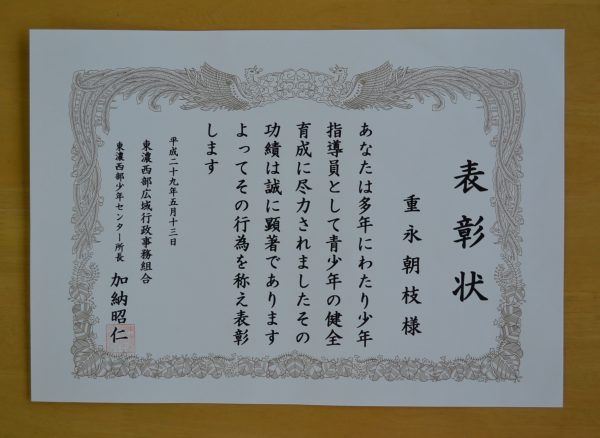 表彰状
重永朝枝様
あなたは多年にわたり少年
指導員として青少年の健全
育成に尽力されましたその
功績は誠に顕著であります
よってその行為を称え表彰
します
平成二十九年五月十三日
東濃西部広域行政事務組合
東濃西部少年センター所長 加納昭仁